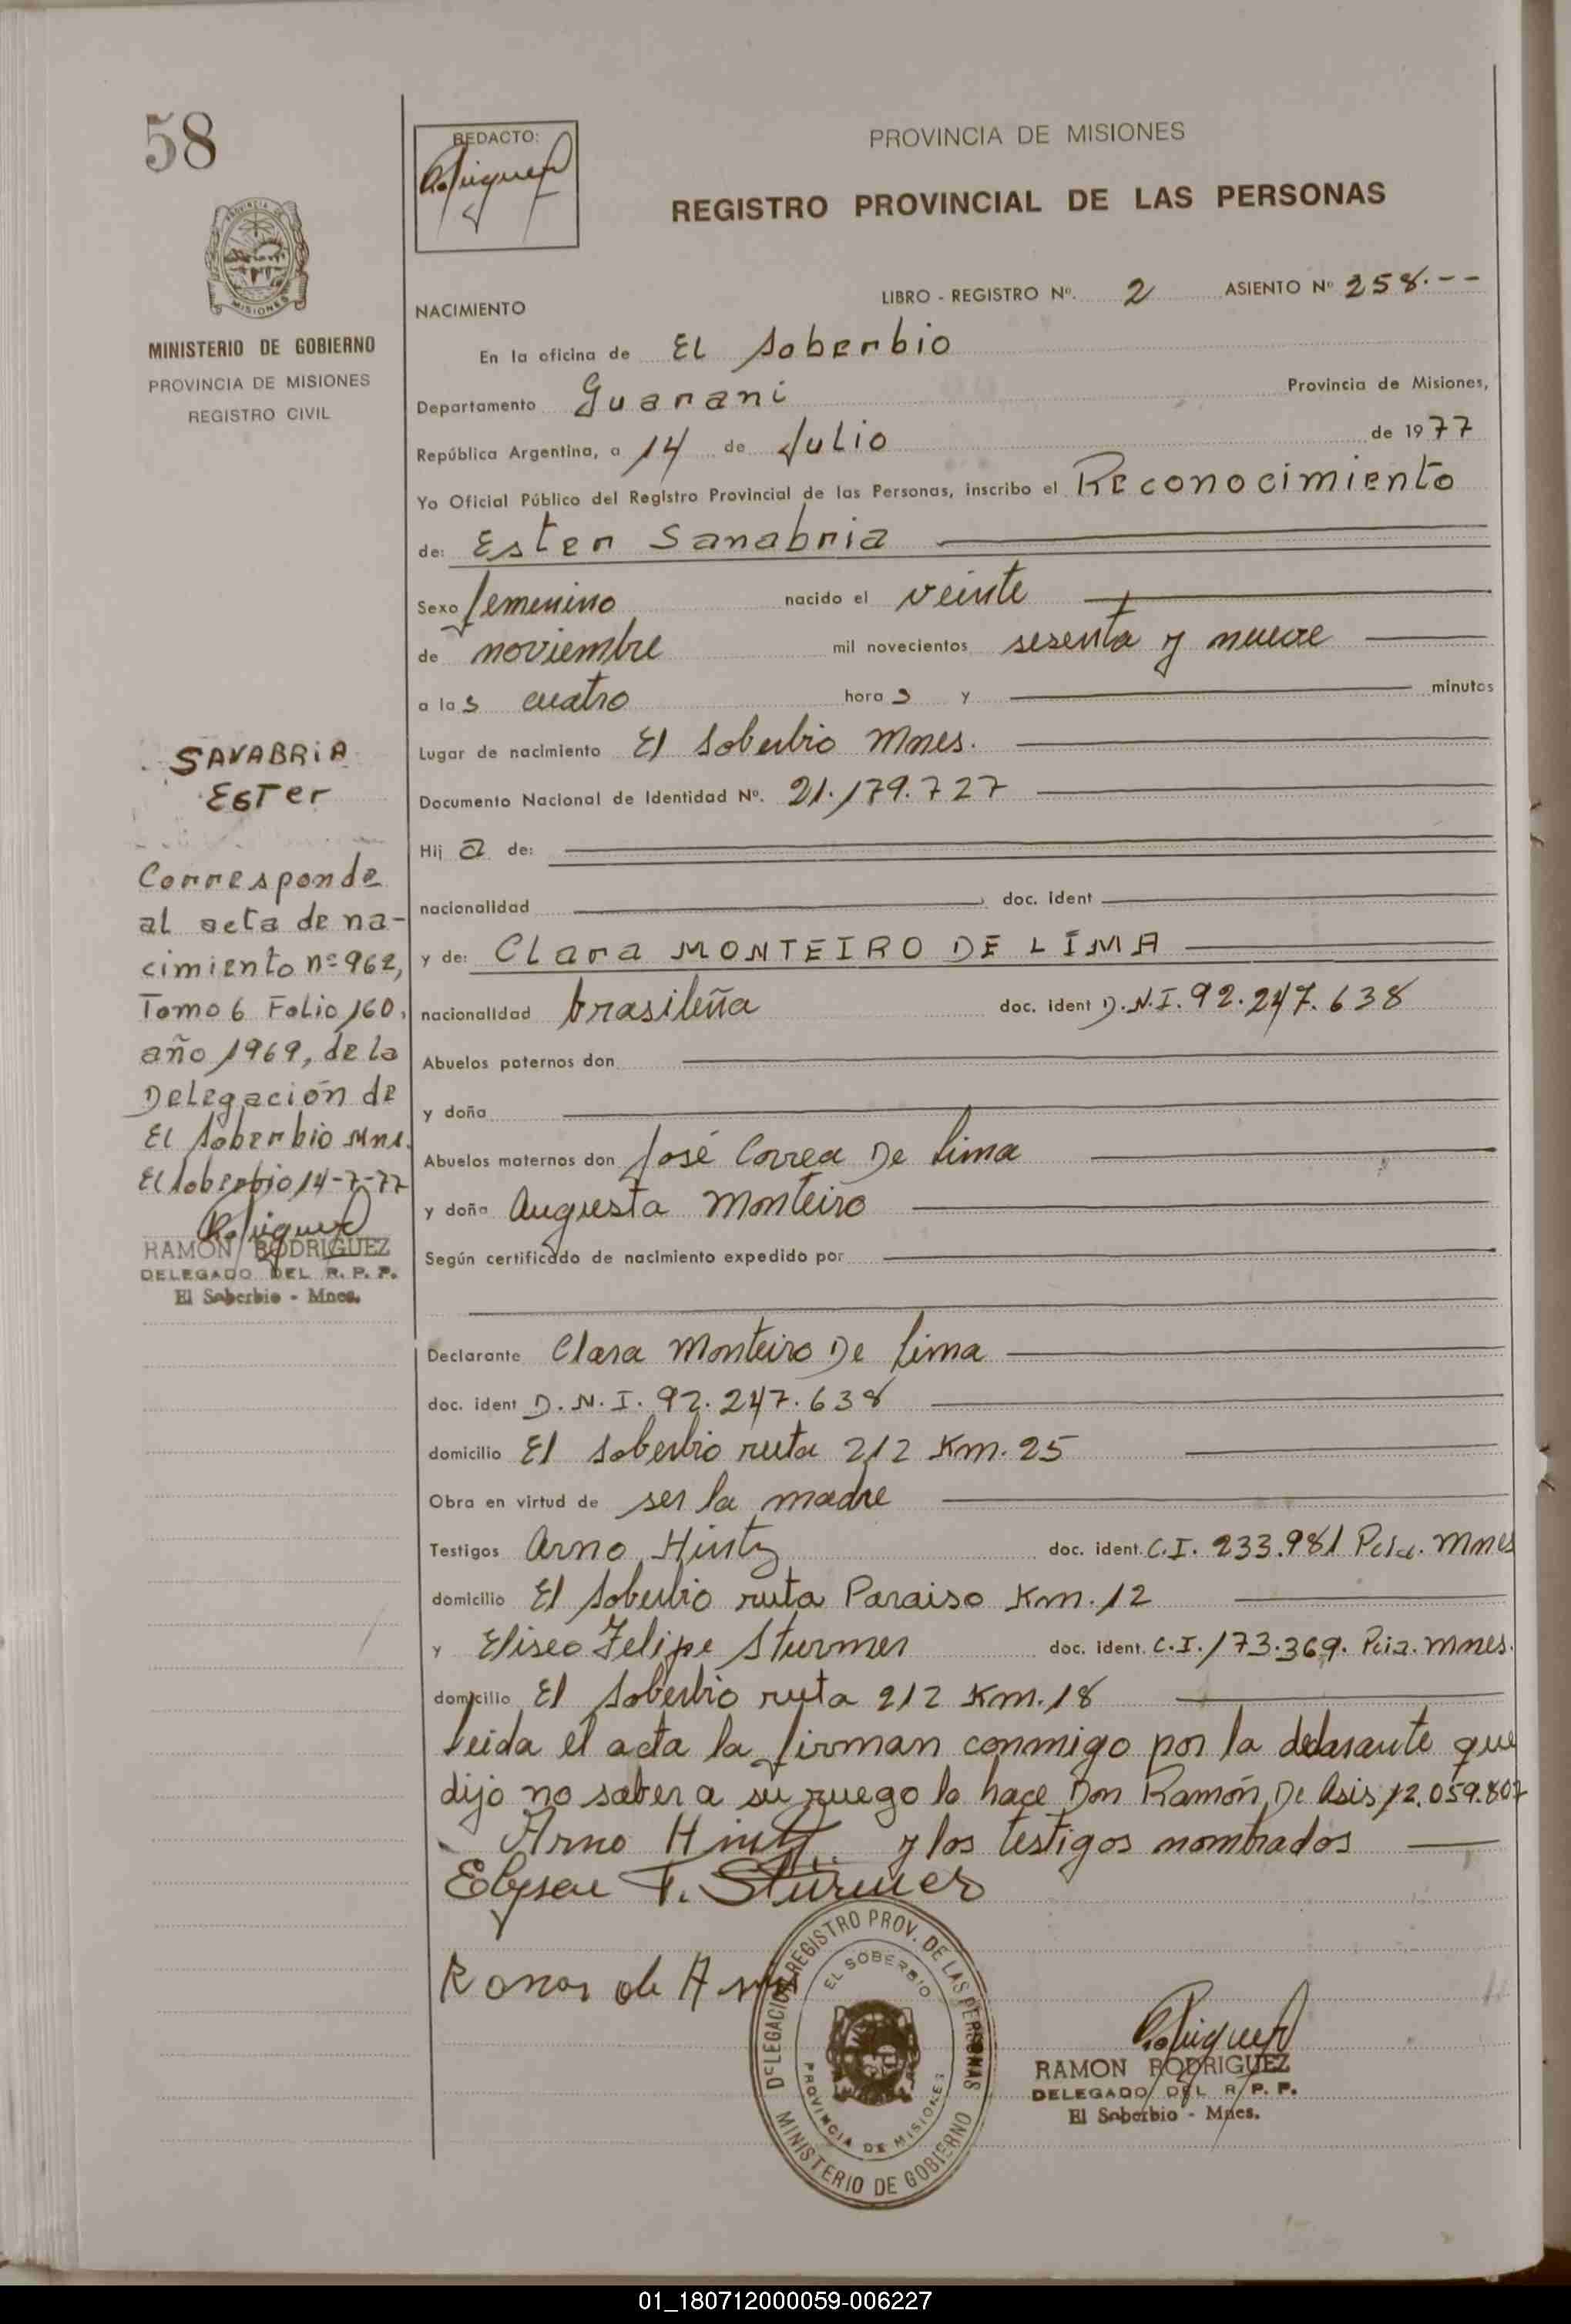 58
REDACTO:
PROVINCIA DE MISIONES
REGISTRO PROVINCIAL DE LAS PERSONAS
MISIONES
MINISTERIO DE GOBIERNO
PROVINCIA DE MISIONES
REGISTRO CIVIL
NACIMIENTO
LIBRO - REGISTRO Nº. 2 ASIENTO Nº 258.--
En la oficina de El Soberbio
Departamento Guarani Provincia de Misiones,
República Argentina, a 14 de Julio de 1977
Yo Oficial Público del Registro Provincial de las Personas, inscribo el Reconocimiento
de: Ester Sanabria
Sexo femenino nacido el veinte
de noviembre mil novecientos sesenta y nueve
a las cuatro horas y minutos
Lugar de nacimiento El Soberbio Mnes.
Documento Nacional de Identidad Nº. 21.179.727
Hija de:
nacionalidad doc. ident
y de: Clara MONTEIRO DE LIMA
nacionalidad brasileña doc. ident D.N.I. 92.247.638
Abuelos paternos don
y doña
Abuelos maternos don José Correa De Lima
y doña Augusta Monteiro
Según certificado de nacimiento expedido por
SANABRIA
ESTer
Corresponde
al acta de na-
cimiento nº 962,
Tomo 6 Folio 160,
año 1969, de la
Delegación de
El Soberbio Mns.
El Soberbio 14-7-77
RAMON RODRIGUEZ
DELEGADO DEL R. P. P.
El Soberbio - Mnes.
Declarante Clara Monteiro De Lima
doc. ident D.N.I. 92.247.638
domicilio El Soberbio ruta 212 Km. 25
Obra en virtud de ser la madre
Testigos Arno Hintz doc. ident. C.I. 233.981 Pcia. Mnes
domicilio El Soberbio ruta Paraiso Km. 12
y Eliseo Felipe Sturmer doc. ident. C.I. 173.369. Pcia. Mnes.
domicilio El Soberbio ruta 212 Km. 18
Leida el acta la firman conmigo por la declarante que
dijo no saber a su ruego lo hace Don Ramón De Asis 12.059.807
Arno Hintz y los testigos nombrados
Elyseu F. Sturmer
Ramon de Asis
DELEGACION REGISTRO PROV. DE LAS PERSONAS
EL SOBERBIO
PROVINCIA DE MISIONES
MINISTERIO DE GOBIERNO
RAMON RODRIGUEZ
DELEGADO DEL R. P. P.
El Soberbio - Mnes.
01_180712000059-006227